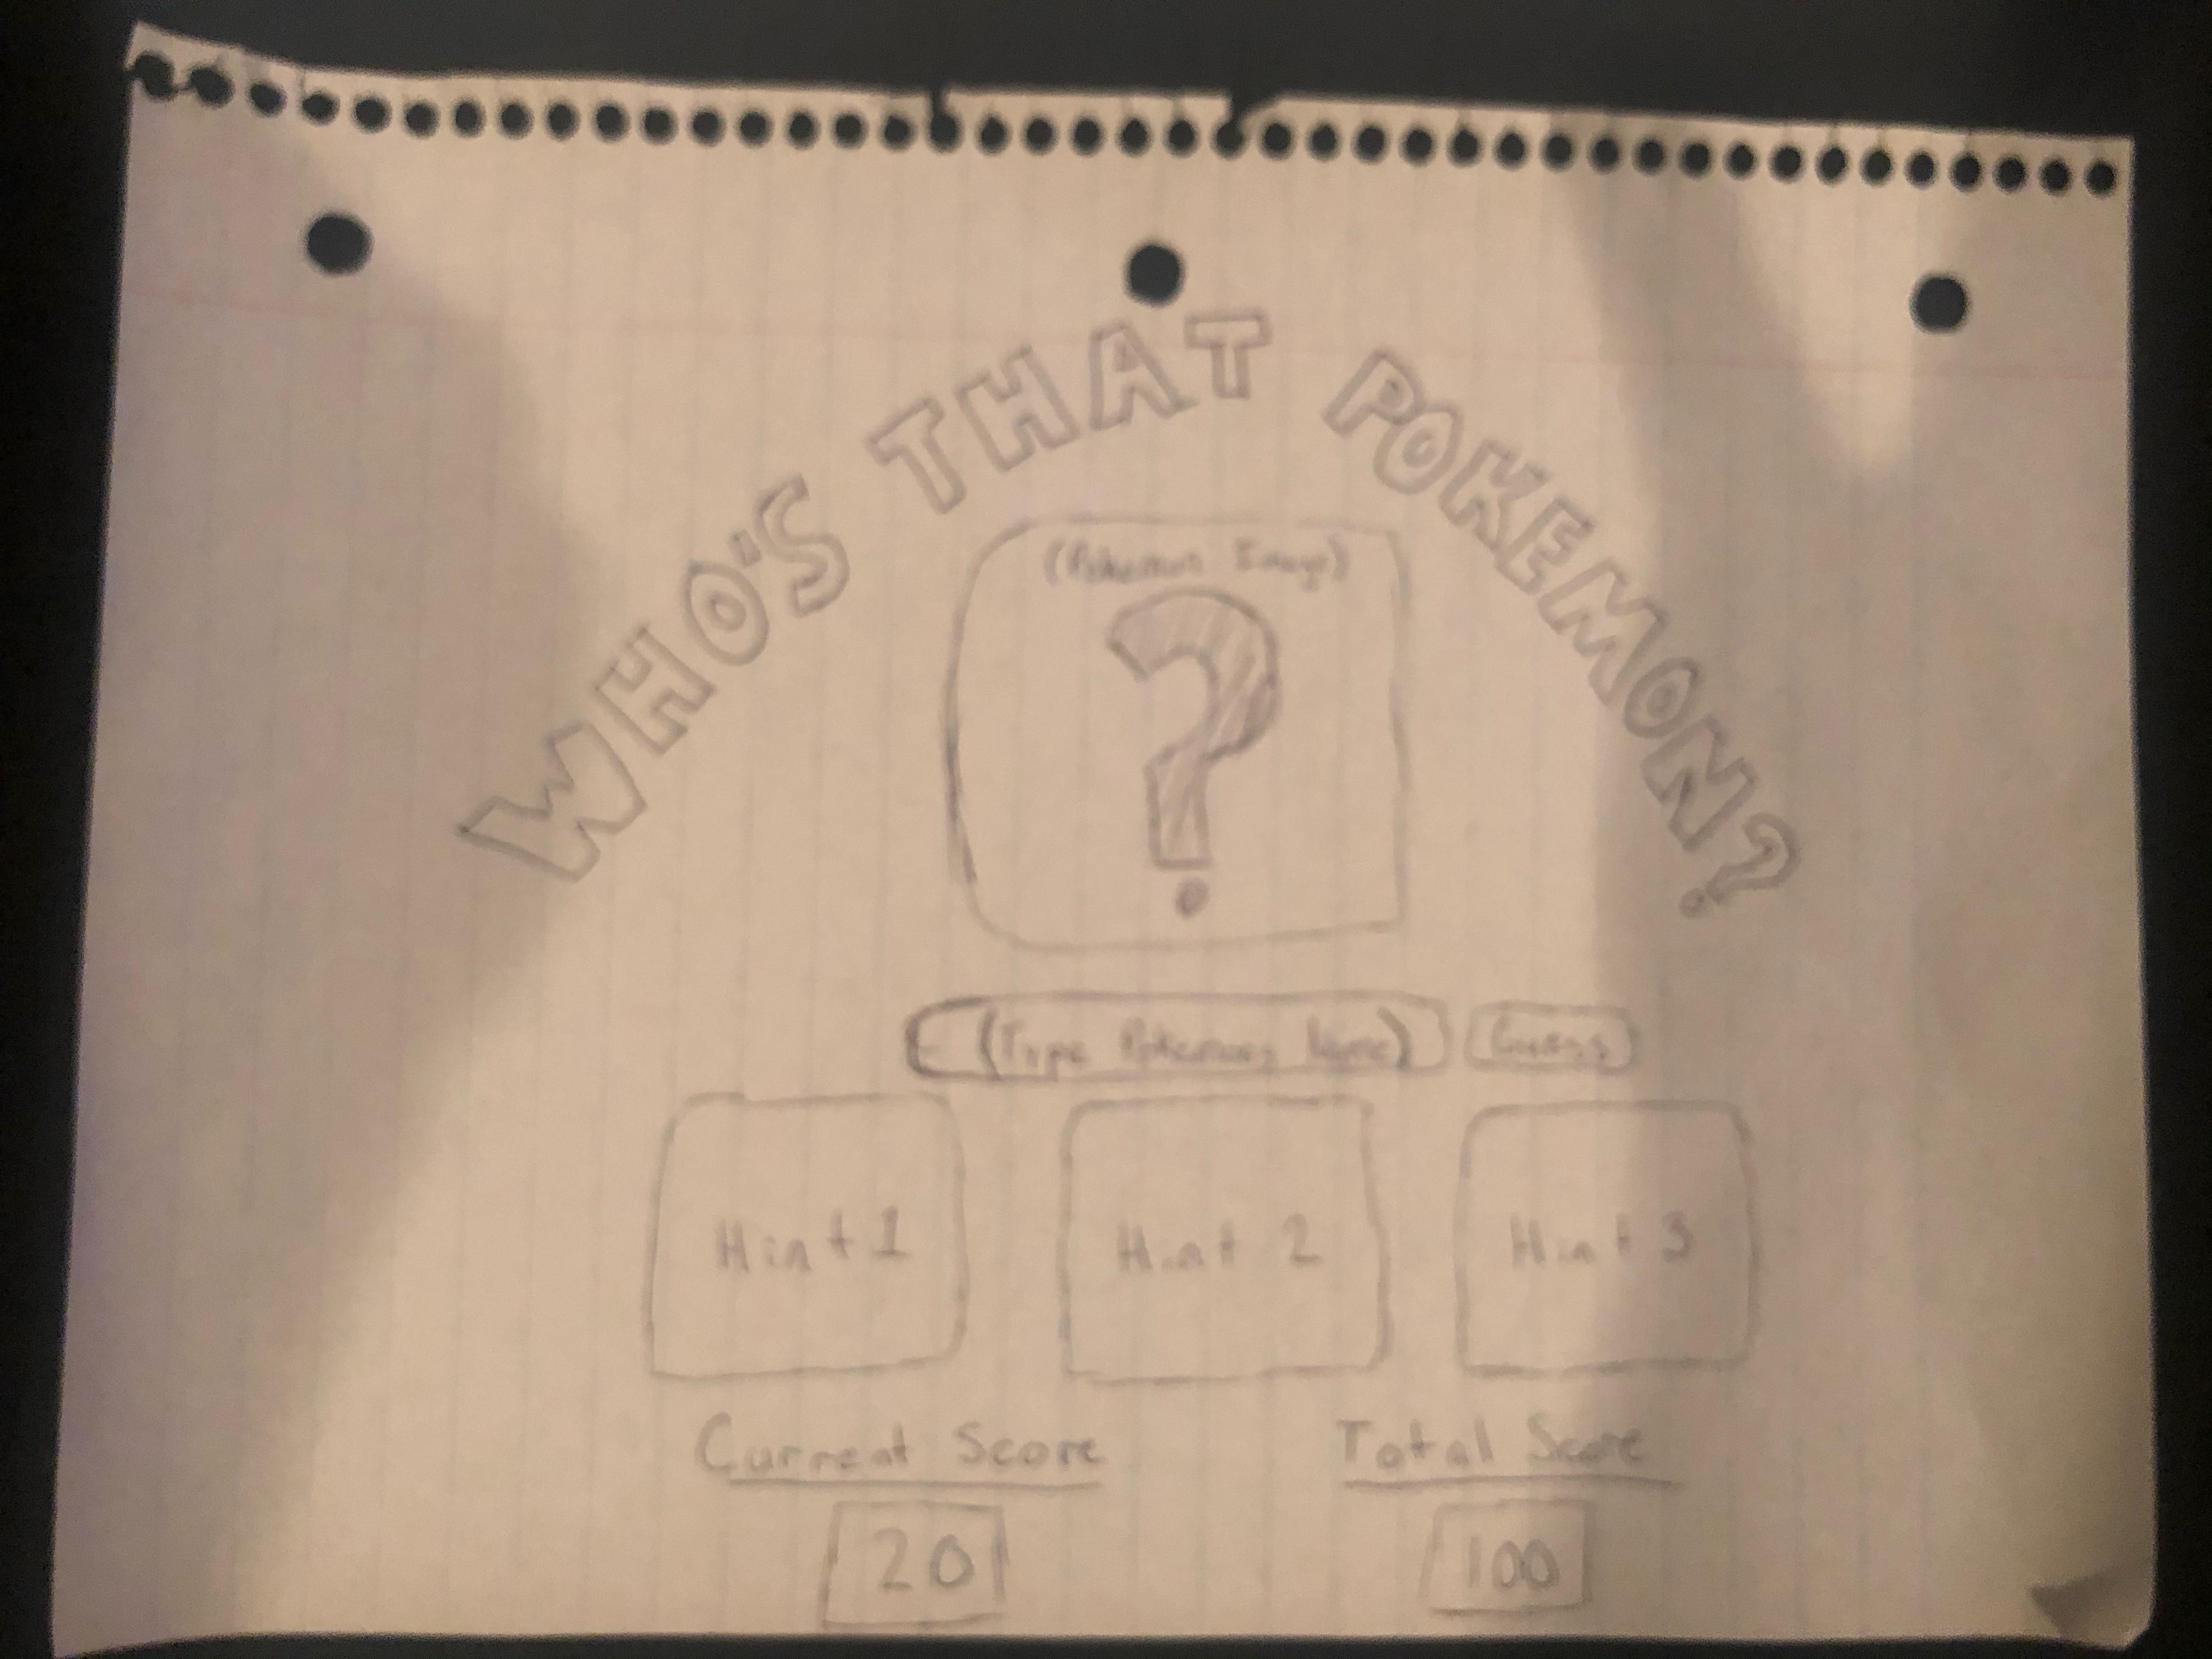 WHO'S THAT POKEMON?
(Pokemon Image)
?
(Type Pokemon Here) Guess
Hint 1 Hint 2 Hint 3
Current Score Total Score
20 100